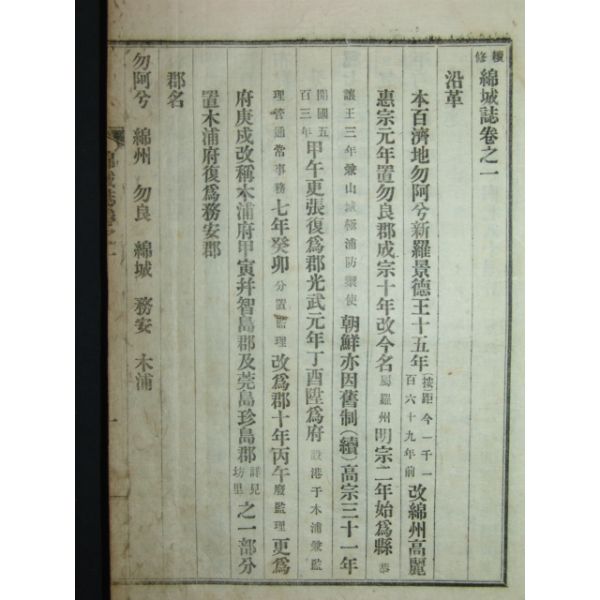 續修 綿城誌卷之一
沿革
本百濟地勿阿兮新羅景德王十五年(按距今一千一百六十九年前)改綿州高麗
惠宗元年置勿良郡成宗十年改今名屬羅州明宗二年始爲縣恭
讓王三年兼山城極浦防禦使朝鮮亦因舊制(續)高宗三十一年
開國五百三年甲午更張復爲郡光武元年丁酉陞爲府設港于木浦兼監
理管通常事務七年癸卯分置監理改爲郡十年丙午廢監理更爲
府庚戌改稱木浦府甲寅幷智島郡及莞島珍島郡詳見坊里之一部分
置木浦府復爲務安郡
郡名
勿阿兮 綿州 勿良 綿城 務安 木浦